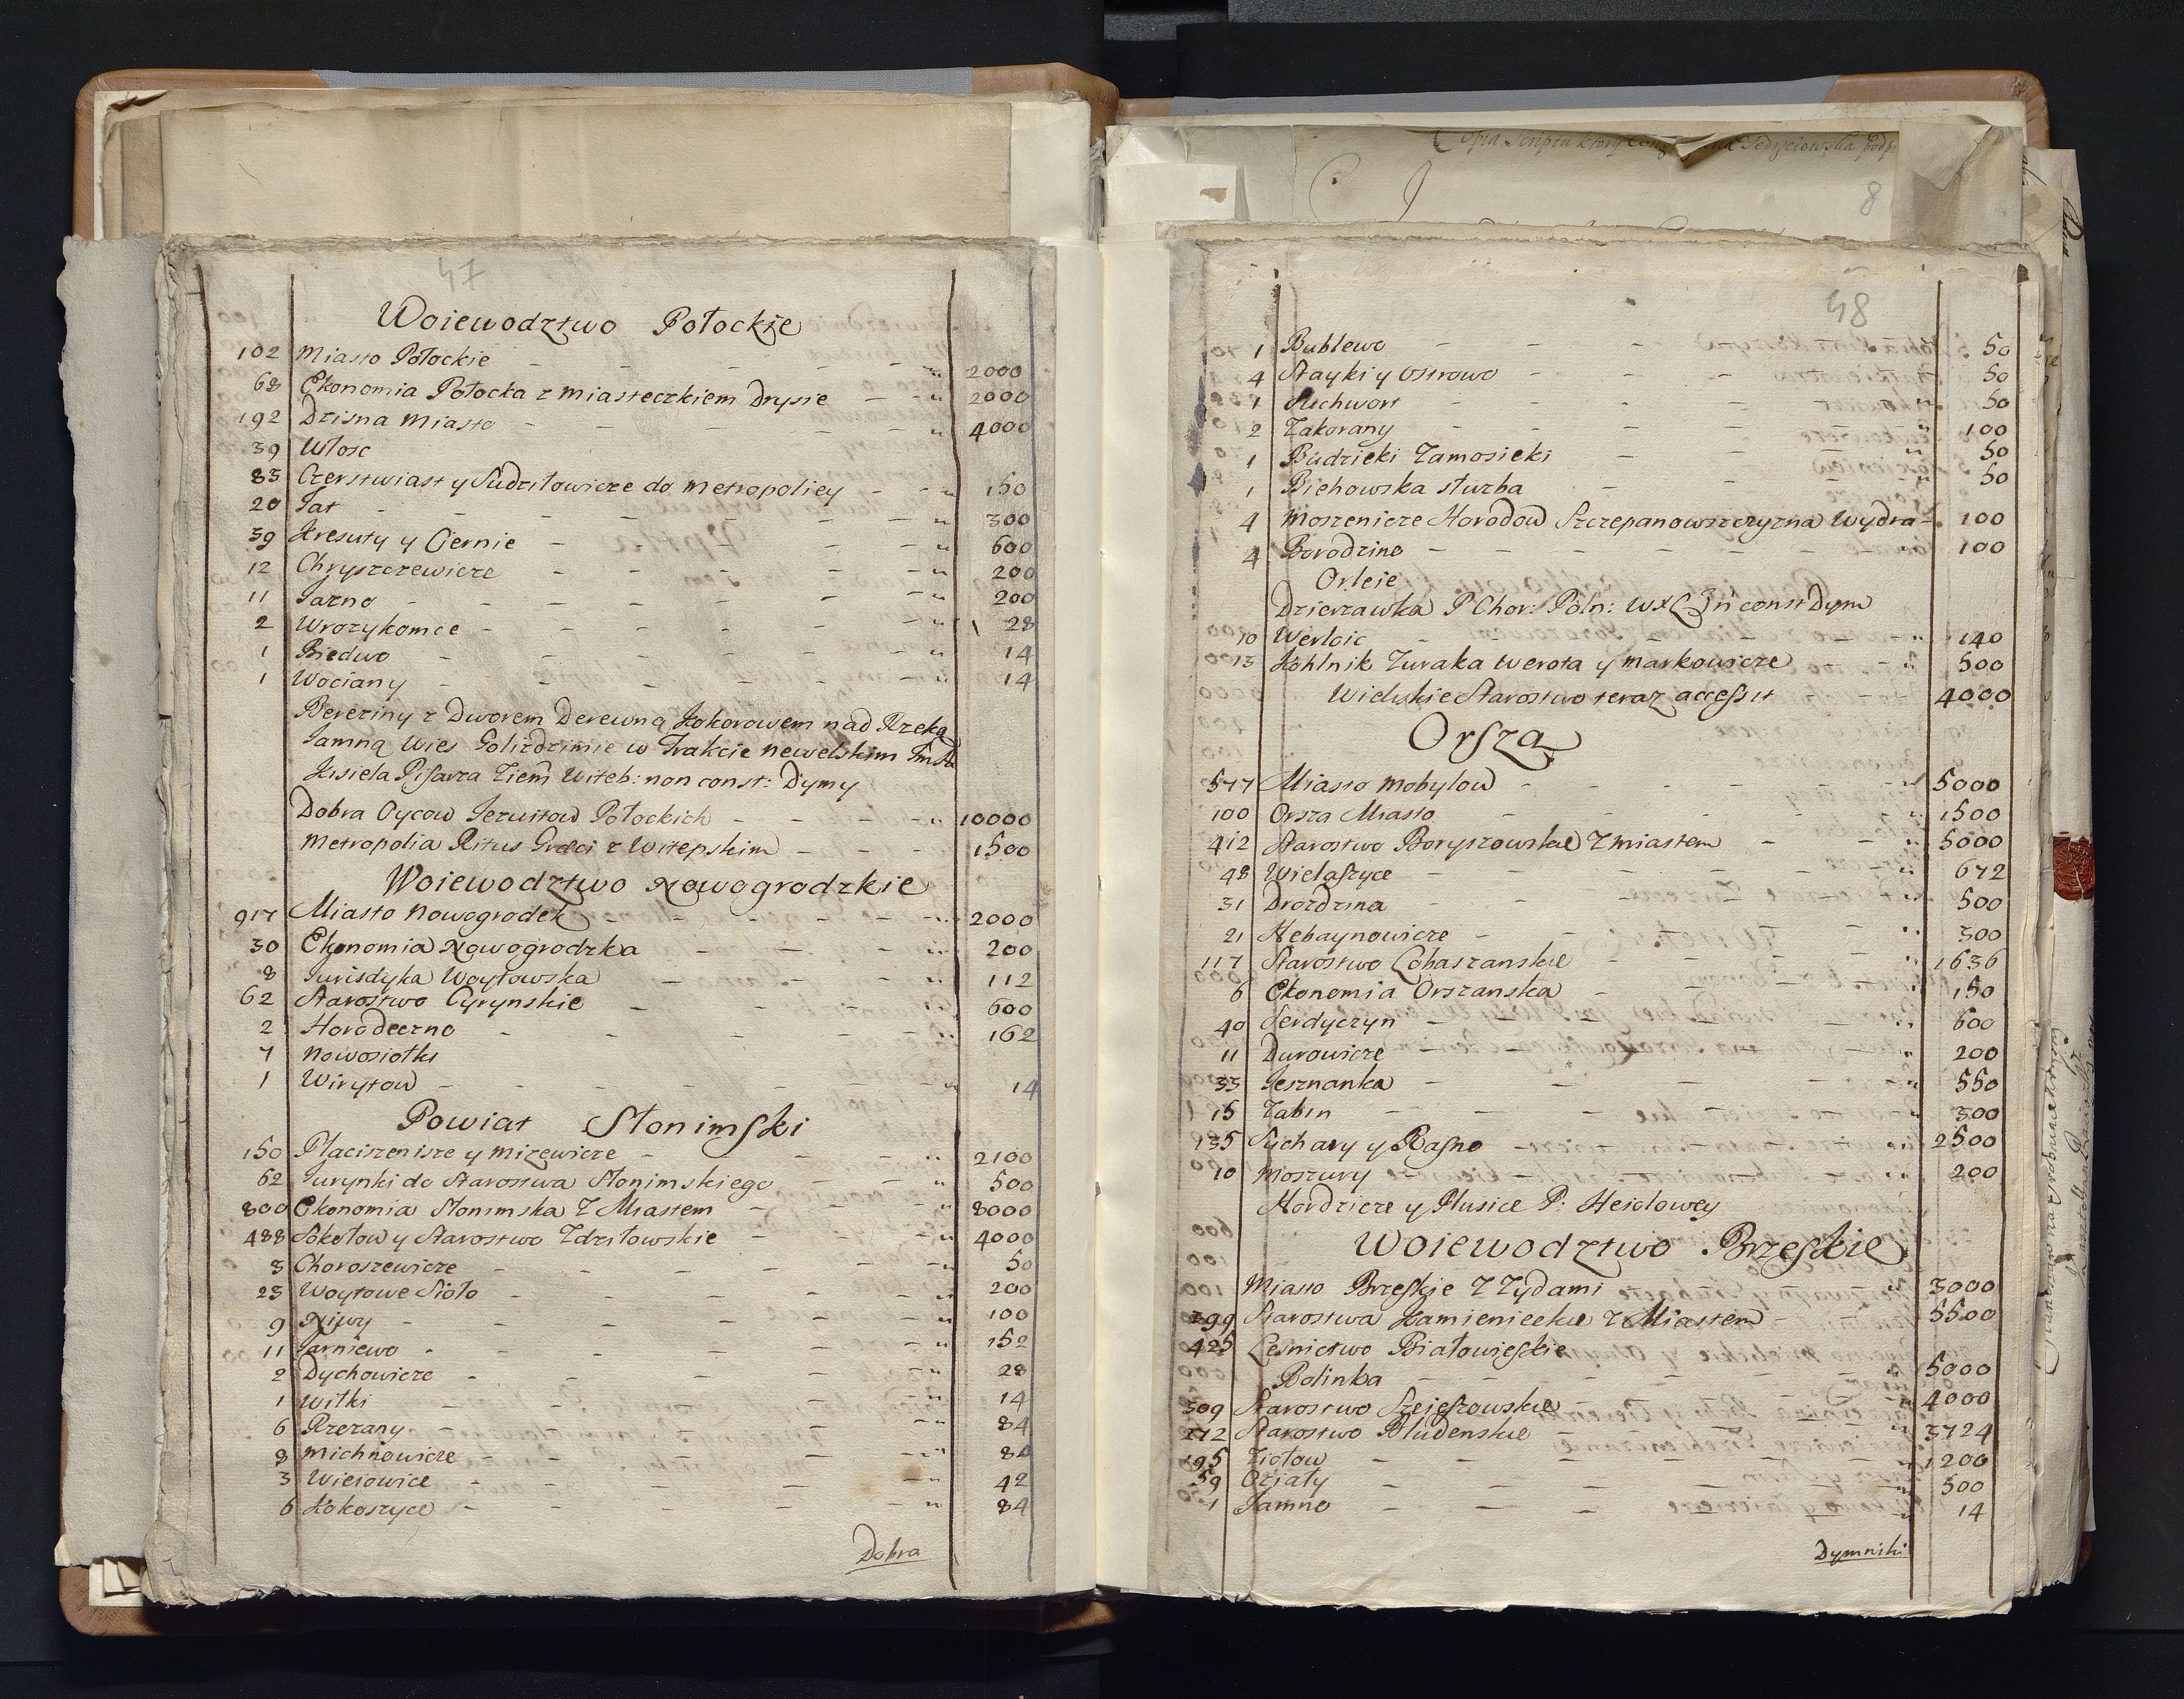 47
Woiewodztwo Połockie
102 Miasto Połockie 2000
68 Ekonomia Połocka z miasteczkiem Drysie 2000
192 Dzisna Miasto 4000
39 Włosc
83 Czerstwiast y Sudziłowicze do metropoliey 150
20 Jat 300
39 Kresuty y Ciernie 600
12 Chryszczewicze 200
11 Jazno 200
2 Wrozykomce 28
1 Biedwo 14
1 Wociany 14
Bereziny z Dworem Derewną Kokorowem nad Rzeką
Jamną Wies Golizdzimie w Trakcie newelskim
Kisiela Pisarza Ziem Witeb: non const: Dymy
Dobra Oycow Jezuitow Połockich 10000
Metropolia Ritus Græci z Witepskim 1500
Woiewodztwo Nowogrodzkie
917 Miasto Nowogrodek 2000
30 Ekonomia Nowogrodzka 200
8 Jurisdyka Woytowska 112
62 Starostwo Cyrynskie 600
2 Horodeczno 162
7 Nowosiołki
1 Wirytow 14
Powiat Słonimski
150 Płaciszenisze y Mizewicze 2100
62 Jurynki do Starostwa Słonimskiego 500
800 Ekonomia Słonimska Z Miastem 8000
488 Sokołow y Starostwo Zdziłowskie 4000
3 Choroszewicze 50
23 Woytowe Sioło 200
9 Niwy 100
11 Jarniewo 152
2 Dychowicze 28
1 Witki 14
6 Rzezany 84
8 Michnowicze 84
3 Wieiowice 42
6 Kokoszyce 84
Dobra
Copia Scriptu ktory
8
48
1 Bublewo 50
4 Stayki y Ostrowo 50
1 Suchwort 50
2 Zakorany 100
1 Budzieki Zamosieki 50
1 Biehowska słuzba 50
4 Moszenicze Horodow Szczepanowszczyzna Wydra 100
4 Borodzino 100
Orleie
Dzierzawka P Chor: Poln: WXL non const Dym
10 Werloic 140
13 Kohlnik Zuraka Werota y Markowicze 500
Wieluskie Starostwo teraz accessit 4000
Orsza
577 Miasto Mohylow 5000
100 Orsza Miasto 1500
412 Starostwo Boryszowskie Z miastem 5000
48 Wielaszyce 672
31 Drozdzina 500
21 Hebaynowicze 300
117 Starostwo Lobaszanskie 1636
6 Ekonomia Orszanska 150
40 Serdyczyn 600
11 Durowicze 200
33 Jesznanka 550
15 Zabin 300
135 Suchary y Rasno 2500
10 Moszury 200
Hordzicze y Plusice P: Heidowey
Woiewodztwo Brzeskie
Miasto Brzeskie Z Zydami 3000
399 Starostwa Kamienieckie z Miastem 5500
425 Lesnictwo Białowieskie
Bolinka 5000
309 Starostwo Szeieszowskie 4000
272 Starostwo Błudenskie 3724
195 Ziołow 1200
59 Oziaty 500
1 Jamno 14
Dymniki